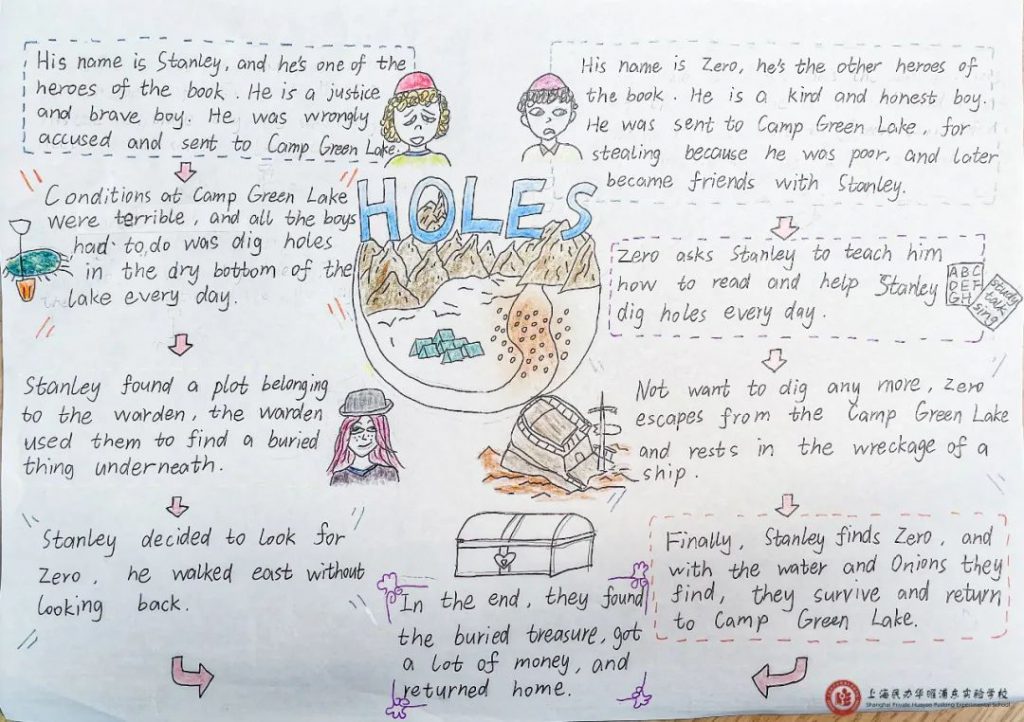 His name is Stanley, and he's one of the
heroes of the book. He is a justice
and brave boy. He was wrongly
accused and sent to Camp Green Lake.
Conditions at Camp Green Lake
were terrible, and all the boys
had to do was dig holes
in the dry bottom of the
lake every day.
Stanley found a plot belonging
to the warden, the warden
used them to find a buried
thing underneath.
Stanley decided to look for
Zero, he walked east without
looking back.
HOLES
His name is Zero, he's the other heroes of
the book. He is a kird and honest boy.
He was sent to Camp Green Lake, for
stealing because he was poor, and later
became friends with Stanley.
Zero asks Stanley to teach him
how to read and help Stanley
dig holes every day.
ABC
DEF
GH
study
talk
sing
Not want to dig any more, Zero
escapes from the Camp Green Lake
and rests in the wreckage of a
ship.
Finally, Stanley finds Zero, and
with the water and Onions they
find, they survive and return
to Camp Green Lake.
In the end, they found
the buried treasure, got
a lot of money, and
returned home.
上海民办华曜浦东实验学校
Shanghai Private Huayao Pudong Experimental School